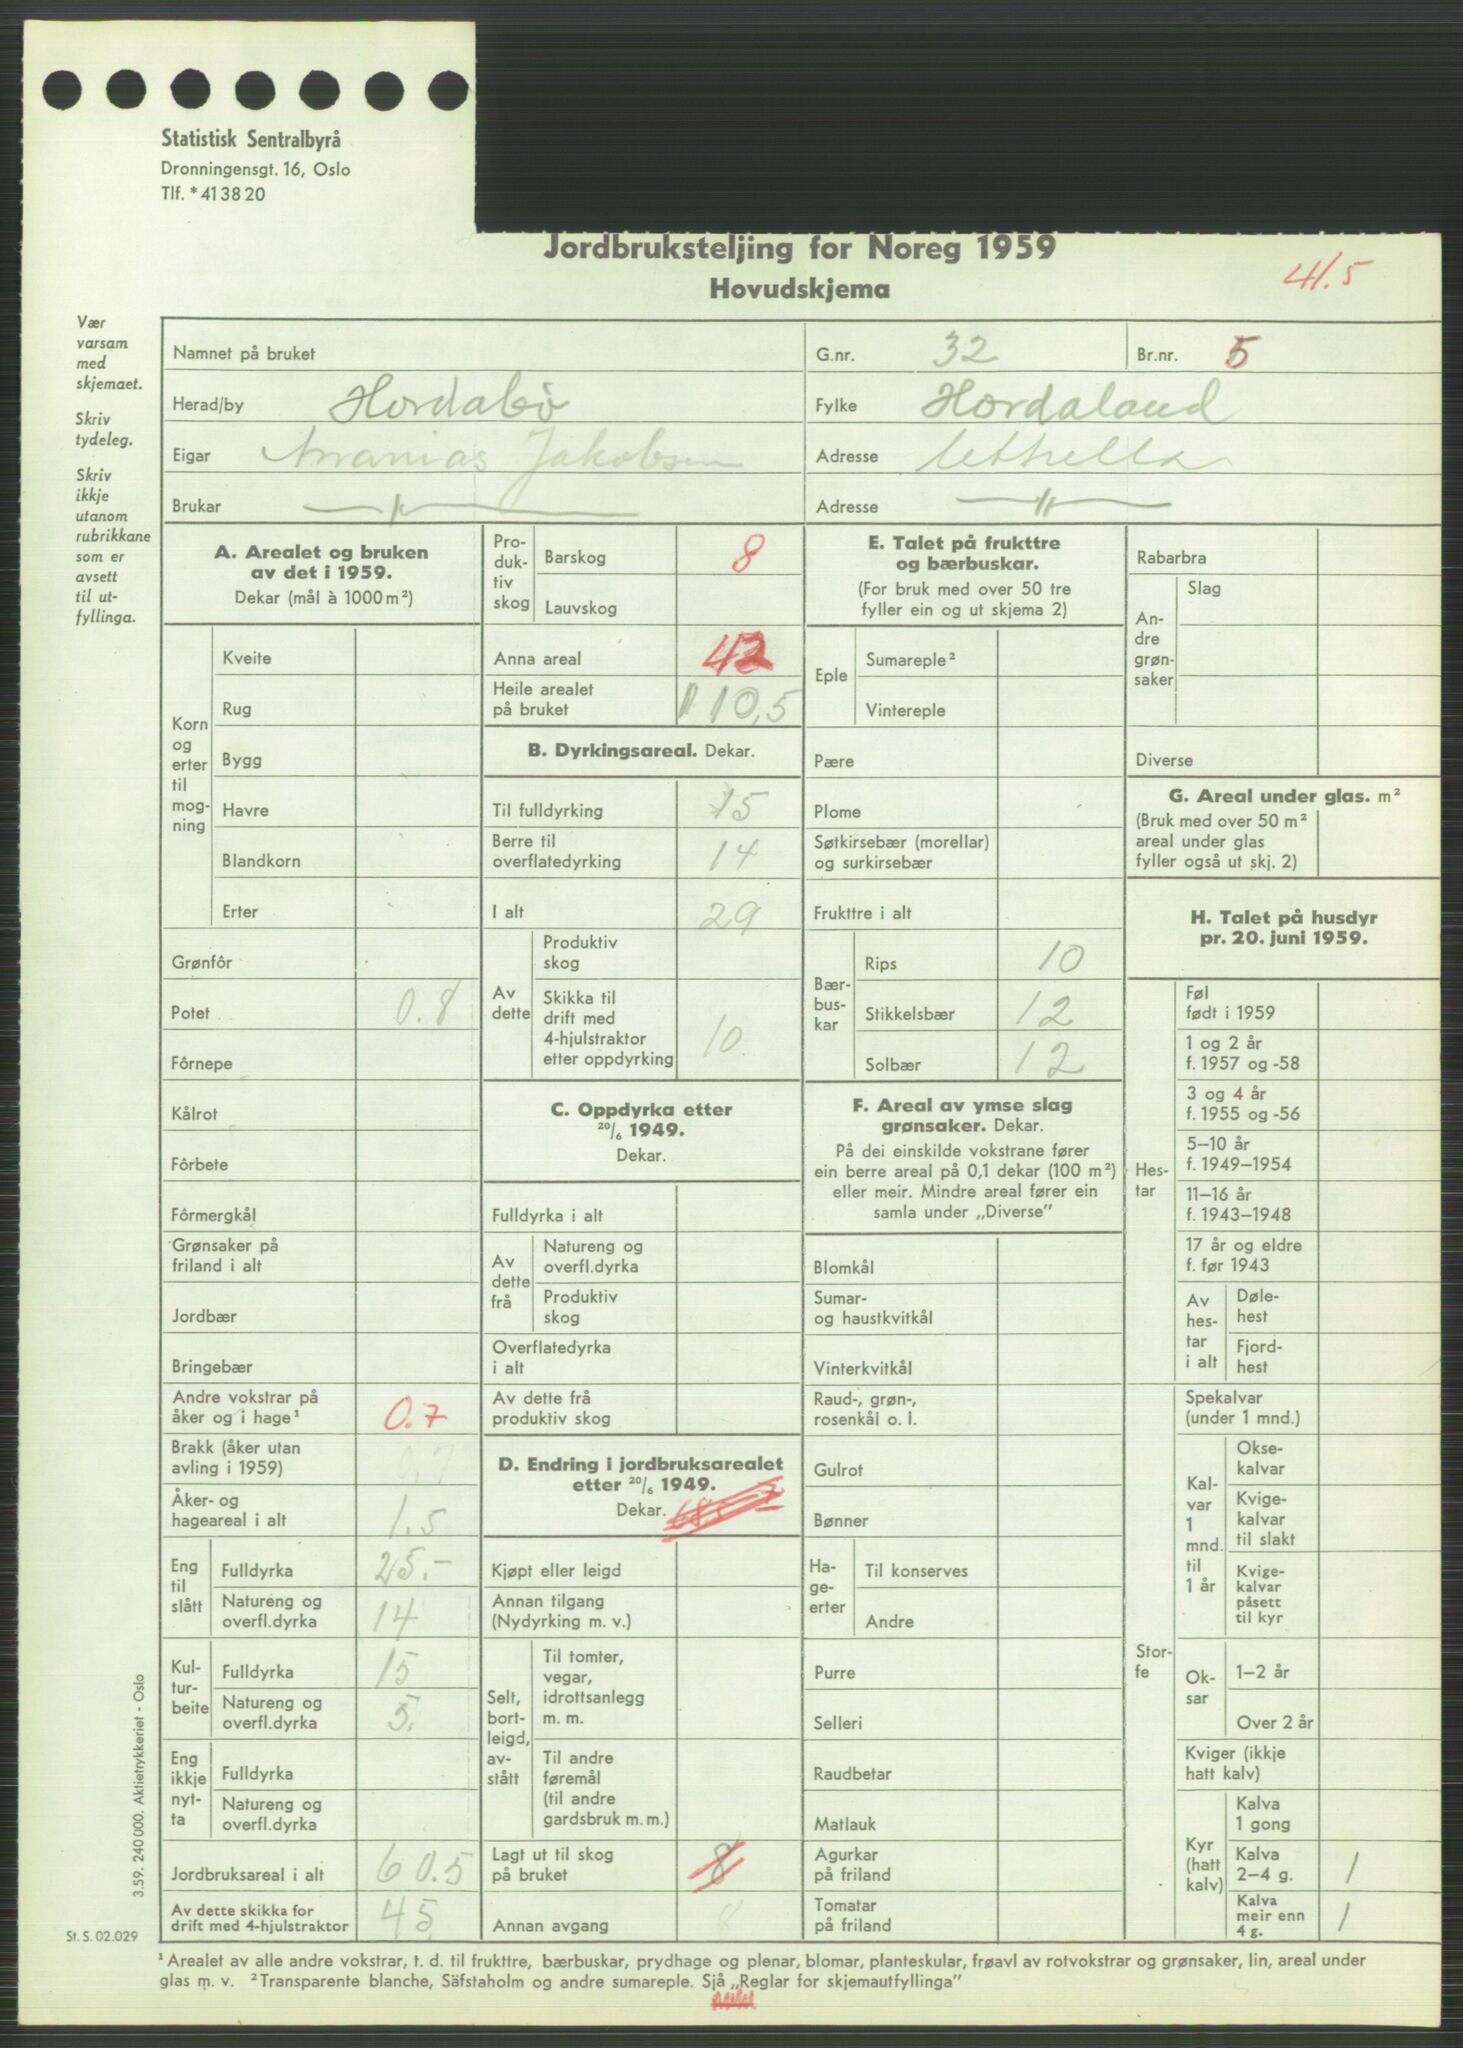 Statistisk Sentralbyrå
Dronningensgt. 16, Oslo
Tlf. *41 38 20
Jordbruksteljing for Noreg 1959
Hovudskjema
41.5
Vær
varsam
med
skjemaet.
Skriv
tydeleg.
Skriv
ikkje
utanom
rubrikkane
som er
avsett
til ut-
fyllinga.
Namnet på bruket
G.nr. 32
Br.nr. 5
Herad/by Hordabø
Fylke Hordaland
Eigar Ananias Jakobsen
Adresse
Brukar —〃—
Adresse —〃—
A. Arealet og bruken
av det i 1959.
Dekar (mål à 1000 m²)
Korn
og
erter
til
mog-
ning
Kveite
Rug
Bygg
Havre
Blandkorn
Erter
Grønfôr
Potet 0.8
Fôrnepe
Kålrot
Fôrbete
Fôrmergkål
Grønsaker på
friland i alt
Jordbær
Bringebær
Andre vokstrar på
åker og i hage¹ 0.7
Brakk (åker utan
avling i 1959) 0.7
Åker- og
hageareal i alt 1.5
Eng
til
slått
Fulldyrka 25.-
Natureng og
overfl.dyrka 14
Kul-
tur-
beite
Fulldyrka 15
Natureng og
overfl.dyrka 5.
Eng
ikkje
nyt-
ta
Fulldyrka
Natureng og
overfl.dyrka
Jordbruksareal i alt 60.5
Av dette skikka for
drift med 4-hjulstraktor 45
Pro-
duk-
tiv
skog
Barskog 8
Lauvskog
Anna areal 42
Heile arealet
på bruket 110,5
B. Dyrkingsareal. Dekar.
Til fulldyrking 15
Berre til
overflatedyrking 14
I alt 29
Av
dette
Produktiv
skog
Skikka til
drift med
4-hjulstraktor
etter oppdyrking 10
C. Oppdyrka etter
20/6 1949.
Dekar.
Fulldyrka i alt
Av
dette
frå
Natureng og
overfl.dyrka
Produktiv
skog
Overflatedyrka
i alt
Av dette frå
produktiv skog
D. Endring i jordbruksarealet
etter 20/6 1949.
Dekar. 68.5
Kjøpt eller leigd
Annan tilgang
(Nydyrking m. v.)
Selt,
bort-
leigd,
av-
stått
Til tomter,
vegar,
idrottsanlegg
m. m.
Til andre
føremål
(til andre
gardsbruk m. m.)
Lagt ut til skog
på bruket 8
Annan avgang 8
E. Talet på frukttre
og bærbuskar.
(For bruk med over 50 tre
fyller ein og ut skjema 2)
Eple
Sumareple²
Vintereple
Pære
Plome
Søtkirsebær (morellar)
og surkirsebær
Frukttre i alt
Bær-
bus-
kar
Rips 10
Stikkelsbær 12
Solbær 12
F. Areal av ymse slag
grønsaker. Dekar.
På dei einskilde vokstrane fører
ein berre areal på 0,1 dekar (100 m²)
eller meir. Mindre areal fører ein
samla under „Diverse”
Blomkål
Sumar-
og haustkvitkål
Vinterkvitkål
Raud-, grøn-,
rosenkål o. l.
Gulrot
Bønner
Ha-
ge-
erter
Til konserves
Andre
Purre
Selleri
Raudbetar
Matlauk
Agurkar
på friland
Tomatar
på friland
Rabarbra
An-
dre
grøn-
saker
Slag
Diverse
G. Areal under glas. m²
(Bruk med over 50 m²
areal under glas
fyller også ut skj. 2)
H. Talet på husdyr
pr. 20. juni 1959.
Hes-
tar
Føl
født i 1959
1 og 2 år
f. 1957 og -58
3 og 4 år
f. 1955 og -56
5–10 år
f. 1949–1954
11–16 år
f. 1943–1948
17 år og eldre
f. før 1943
Av
hes-
tar
i alt
Døle-
hest
Fjord-
hest
Stor-
fe
Spekalvar
(under 1 mnd.)
Kal-
var
1
mnd.
til
1 år
Okse-
kalvar
Kvige-
kalvar
til slakt
Kvige-
kalvar
påsett
til kyr
Ok-
sar
1–2 år
Over 2 år
Kviger (ikkje
hatt kalv)
Kyr
(hatt
kalv)
Kalva
1 gong
Kalva
2–4 g. 1
Kalva
meir enn
4 g. 1
3.59. 240 000. Aktietrykkeriet - Oslo
St. S. 02.029
¹ Arealet av alle andre vokstrar, t. d. til frukttre, bærbuskar, prydhage og plenar, blomar, planteskular, frøavl av rotvokstrar og grønsaker, lin, areal under
glas m. v. ² Transparente blanche, Säfstaholm og andre sumareple. Sjå „Reglar for skjemautfyllinga”